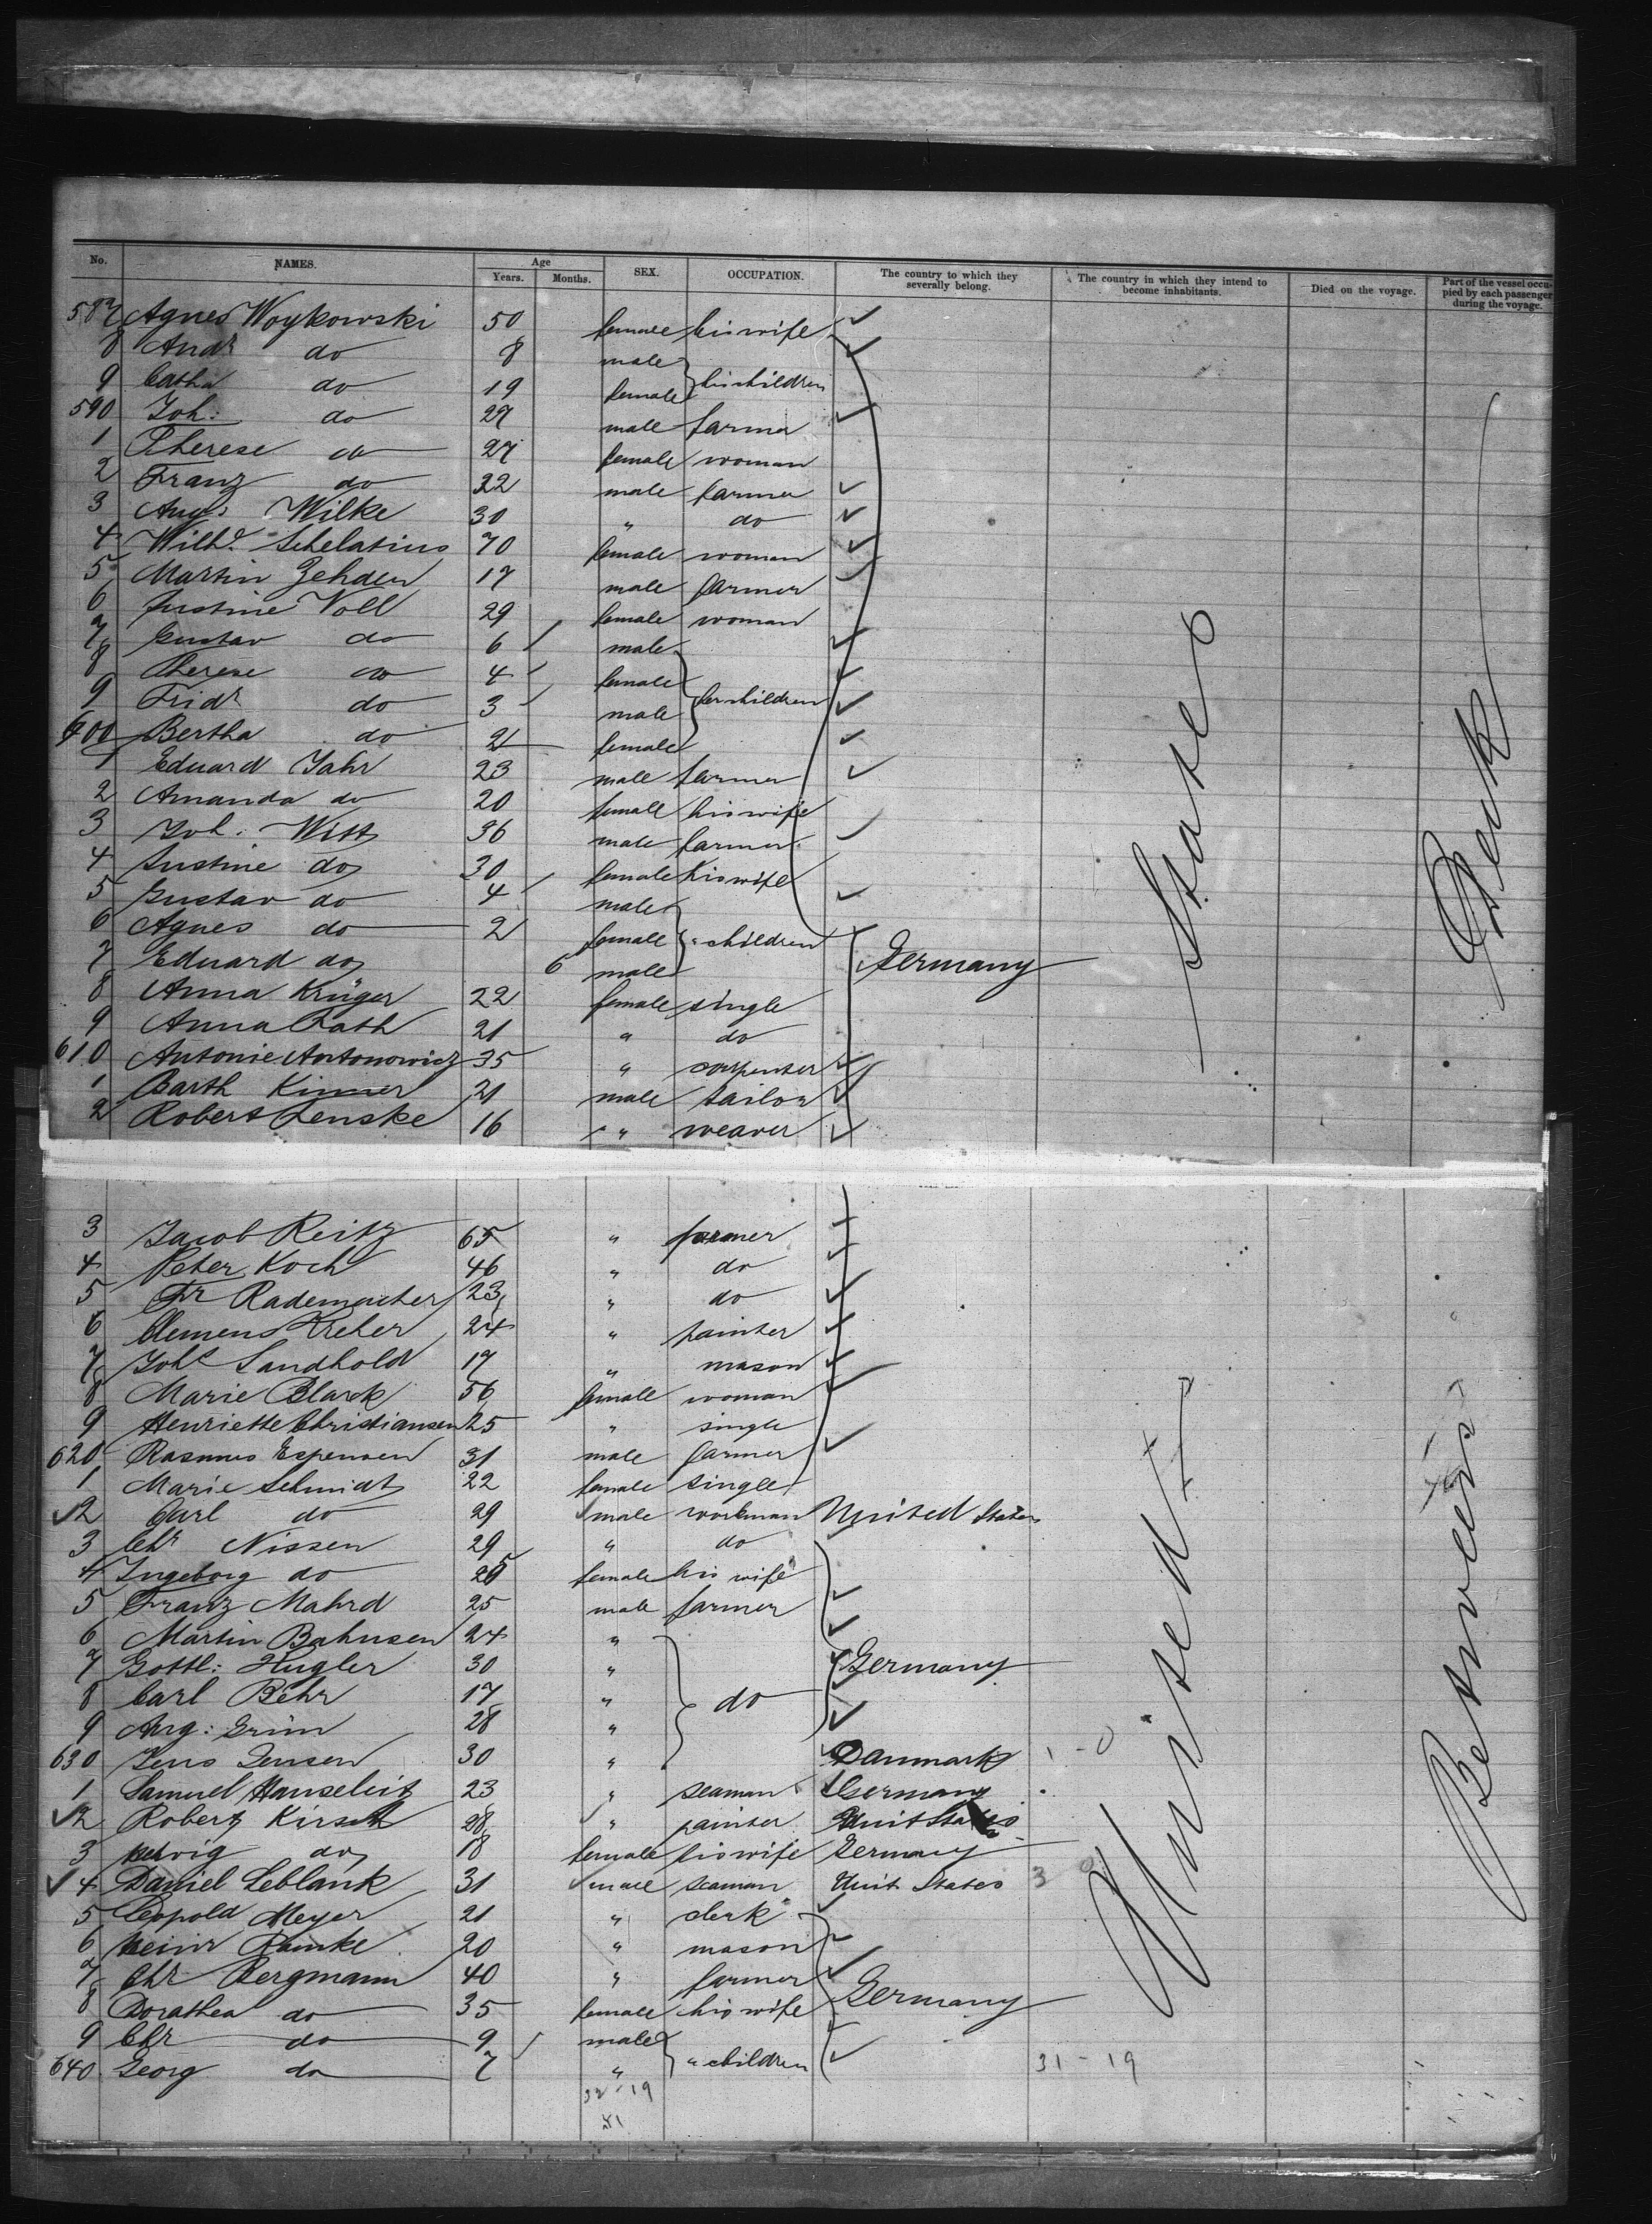 No. NAMES. Age Years. Months. SEX. OCCUPATION. The country to which they severally belong. The country in which they intend to become inhabitants. Died on the voyage. Part of the vessel occupied by each passenger during the voyage.
587 Agnes Woykowski 50 female his wife
8 Andr do 8 male
9 Catha do 19 female his children
590 Joh: do 27 male farmer
1 Therese do 27 female woman
2 Franz do 22 male farmer
3 Aug: Wilke 30 " do
4 Wilhe. Schelatius 70 female woman
5 Martin Zehden 17 male farmer
6 Justine Voll 29 female woman
7 Gustav do 6 male
8 Therese do 4 female
9 Fridr do 3 male her children
600 Bertha do 2 female
1 Eduard Jahr 23 male farmer
2 Amanda do 20 female his wife
3 Joh. Witt 36 male farmer
4 Justine do 30 female his wife
5 Gustav do 4 male
6 Agnes do 2 female " children
7 Eduard do 6 male Germany
8 Anna Krüger 22 female single
9 Anna Rath 21 " do
610 Antonie Antonowicz 35 " carpenter
1 Barth Kimmer 21 male tailor
2 Robert Lenske 16 " weaver
3 Jacob Reitz 65 " farmer
4 Peter Koch 46 " do
5 Fr Rademacher 23 " do
6 Clemens Kreher 24 " painter
7 Johs Sandhold 17 " mason
8 Marie Black 56 female woman
9 Henriette Christiansen 25 " single
620 Rasmus Espensen 31 male farmer
1 Marie Schmidt 22 female single
2 Carl do 29 male workman United States
3 Chr Nissen 29 " do
4 Ingeborg do 25 female his wife
5 Franz Mahrd 25 male farmer
6 Martin Bahnsen 24 "
7 Gottl: Hugler 30 " Germany
8 Carl Behr 17 " do
9 Aug: Grün 28 "
630 Jens Jensen 30 " Danmark
1 Samuel Hanseleit 23 " seaman Germany
2 Robert Kirsch 28 " painter Unit States
3 Hedwig do 18 female his wife Germany
4 Daniel Leblank 31 male seaman Unit States
5 Leopold Meyer 21 " clerk
6 Heinr Ramke 20 " mason
7 Chr Bergmann 40 " farmer
8 Dorathea do 35 female his wife Germany
9 Chr do 9 male
640 Georg do 7 " " children
31-19
32-19
United States
Between Deck